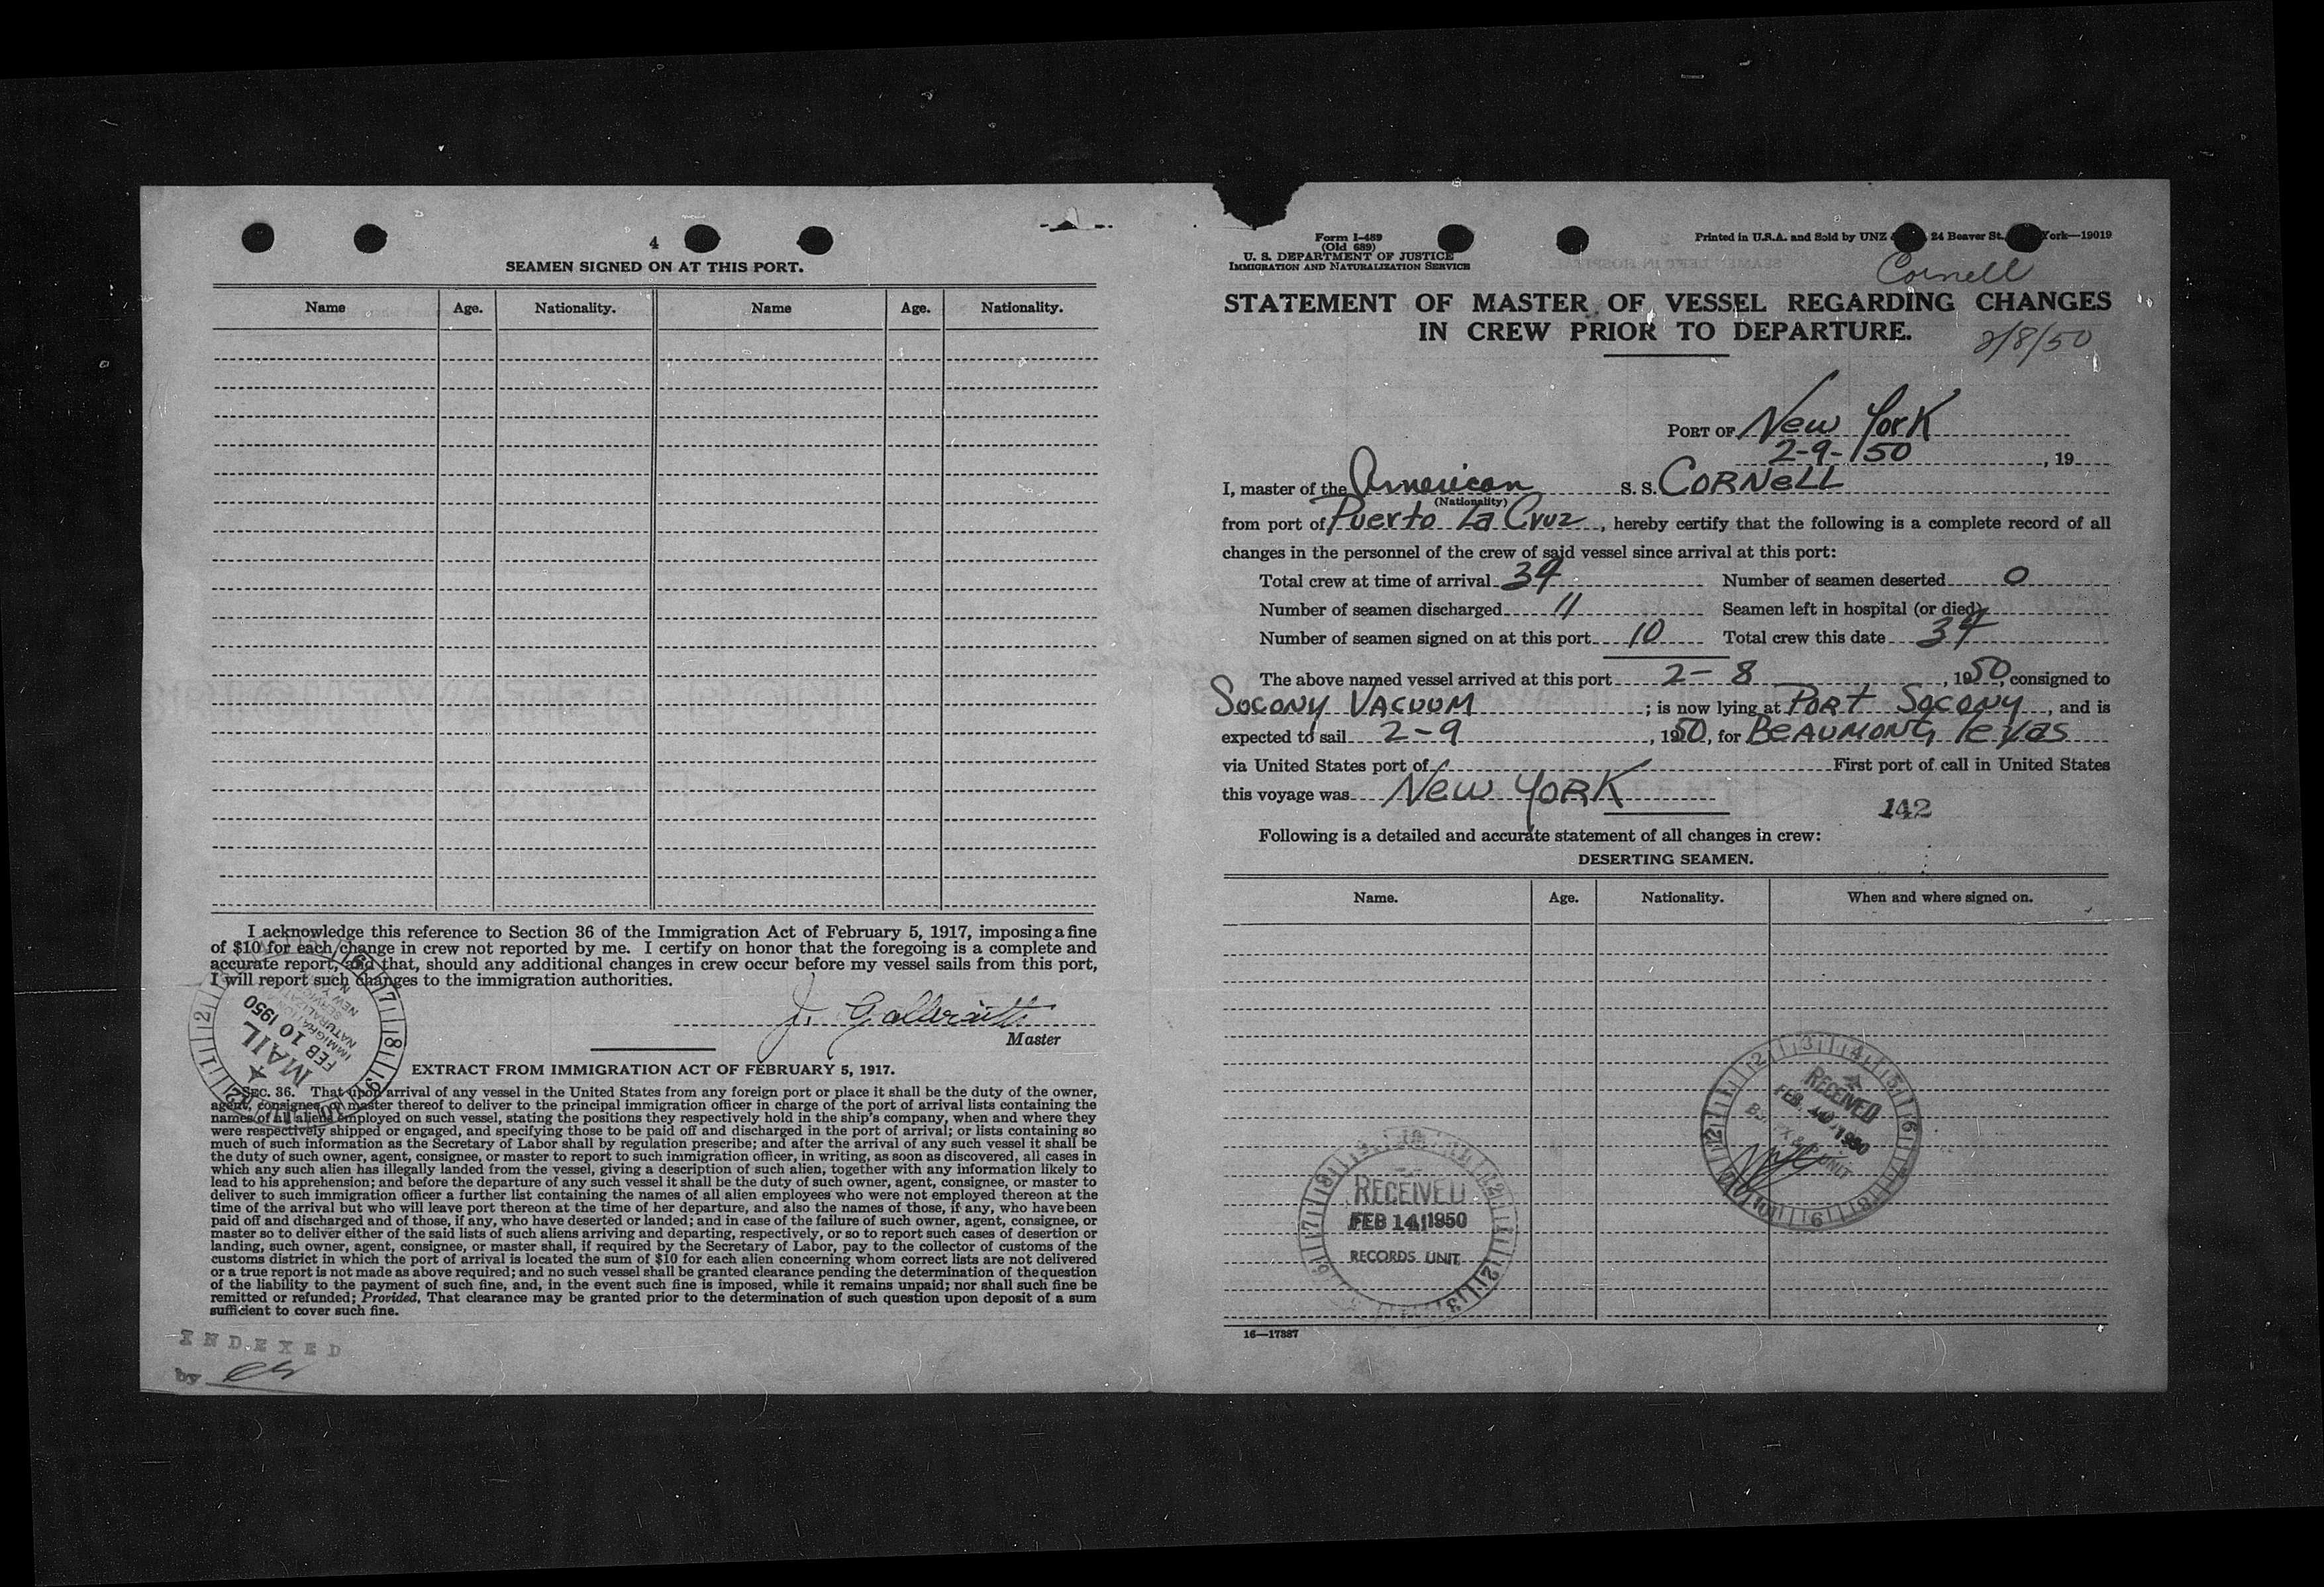 4
SEAMEN SIGNED ON AT THIS PORT.
Name Age. Nationality. Name Age. Nationality.
I acknowledge this reference to Section 36 of the Immigration Act of February 5, 1917, imposing a fine
of $10 for each change in crew not reported by me. I certify on honor that the foregoing is a complete and
accurate report, and that, should any additional changes in crew occur before my vessel sails from this port,
I will report such changes to the immigration authorities.
J. Galbraith
Master
MAIL
FEB 10 1950
IMMIGRATION
EXTRACT FROM IMMIGRATION ACT OF FEBRUARY 5, 1917.
SEC. 36. That upon arrival of any vessel in the United States from any foreign port or place it shall be the duty of the owner,
agent, consignee, or master thereof to deliver to the principal immigration officer in charge of the port of arrival lists containing the
names of all aliens employed on such vessel, stating the positions they respectively hold in the ship's company, when and where they
were respectively shipped or engaged, and specifying those to be paid off and discharged in the port of arrival; or lists containing so
much of such information as the Secretary of Labor shall by regulation prescribe; and after the arrival of any such vessel it shall be
the duty of such owner, agent, consignee, or master to report to such immigration officer, in writing, as soon as discovered, all cases in
which any such alien has illegally landed from the vessel, giving a description of such alien, together with any information likely to
lead to his apprehension; and before the departure of any such vessel it shall be the duty of such owner, agent, consignee, or master to
deliver to such immigration officer a further list containing the names of all alien employees who were not employed thereon at the
time of the arrival but who will leave port thereon at the time of her departure, and also the names of those, if any, who have been
paid off and discharged and of those, if any, who have deserted or landed; and in case of the failure of such owner, agent, consignee, or
master so to deliver either of the said lists of such aliens arriving and departing, respectively, or so to report such cases of desertion or
landing, such owner, agent, consignee, or master shall, if required by the Secretary of Labor, pay to the collector of customs of the
customs district in which the port of arrival is located the sum of $10 for each alien concerning whom correct lists are not delivered
or a true report is not made as above required; and no such vessel shall be granted clearance pending the determination of the question
of the liability to the payment of such fine, and, in the event such fine is imposed, while it remains unpaid; nor shall such fine be
remitted or refunded; Provided, That clearance may be granted prior to the determination of such question upon deposit of a sum
sufficient to cover such fine.
INDEXED
by
Form I-489
(Old 689)
U. S. DEPARTMENT OF JUSTICE
IMMIGRATION AND NATURALIZATION SERVICE
Printed in U.S.A. and Sold by UNZ 24 Beaver St. York—19019
Cornell
STATEMENT OF MASTER OF VESSEL REGARDING CHANGES
IN CREW PRIOR TO DEPARTURE.
2/8/50
PORT OF New York
2-9-150, 19
I, master of the American S. S. CORNELL
(Nationality)
from port of Puerto La Cruz, hereby certify that the following is a complete record of all
changes in the personnel of the crew of said vessel since arrival at this port:
Total crew at time of arrival 39 Number of seamen deserted 0
Number of seamen discharged 11 Seamen left in hospital (or died)
Number of seamen signed on at this port 10 Total crew this date 39
The above named vessel arrived at this port 2-8, 1950, consigned to
SOCONY VACUUM; is now lying at PORT SOCONY, and is
expected to sail 2-9, 1950, for BEAUMONT, Texas
via United States port of First port of call in United States
this voyage was New YORK
142
Following is a detailed and accurate statement of all changes in crew:
DESERTING SEAMEN.
Name. Age. Nationality. When and where signed on.
RECEIVED
FEB. 1950
UNIT
RECEIVED
FEB 14 1950
RECORDS UNIT
16—17387